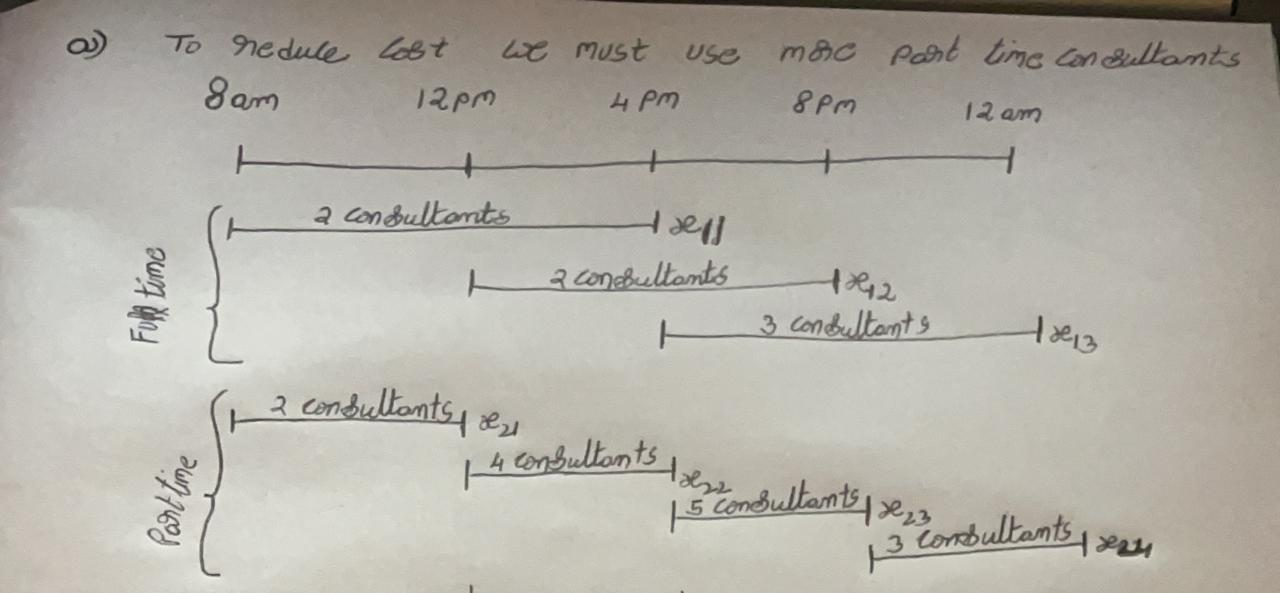 a) To reduce cost we must use more part time consultants
8am 12pm 4pm 8pm 12am
2 consultants x11
2 consultants x12
3 consultants x13
Full time
2 consultants x21
4 consultants x22
5 consultants x23
3 consultants x24
Part time